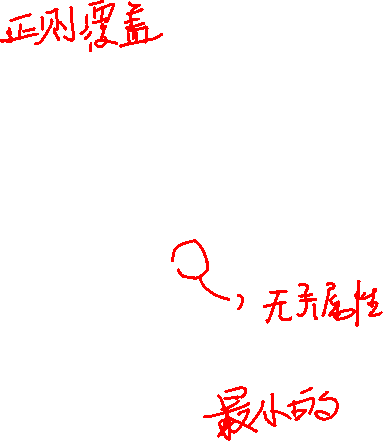 正则覆盖
无关属性
最小的